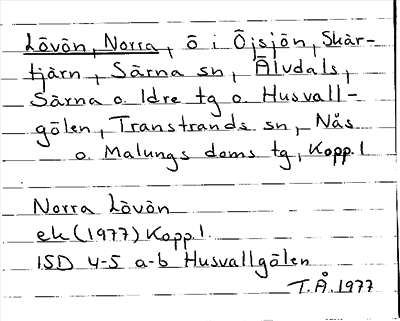 Lövön, Norra, ö i Öjsjön, Skär-
tjärn, Särna sn, Älvdals,
Särna o. Idre tg o. Husvall-
gölen, Transtrands sn, Nås
o. Malungs doms tg, Kopp. l
Norra Lövön
ek (1977) Kopp. l.
15D 4-5 a-b Husvallgölen
T.Å. 1977